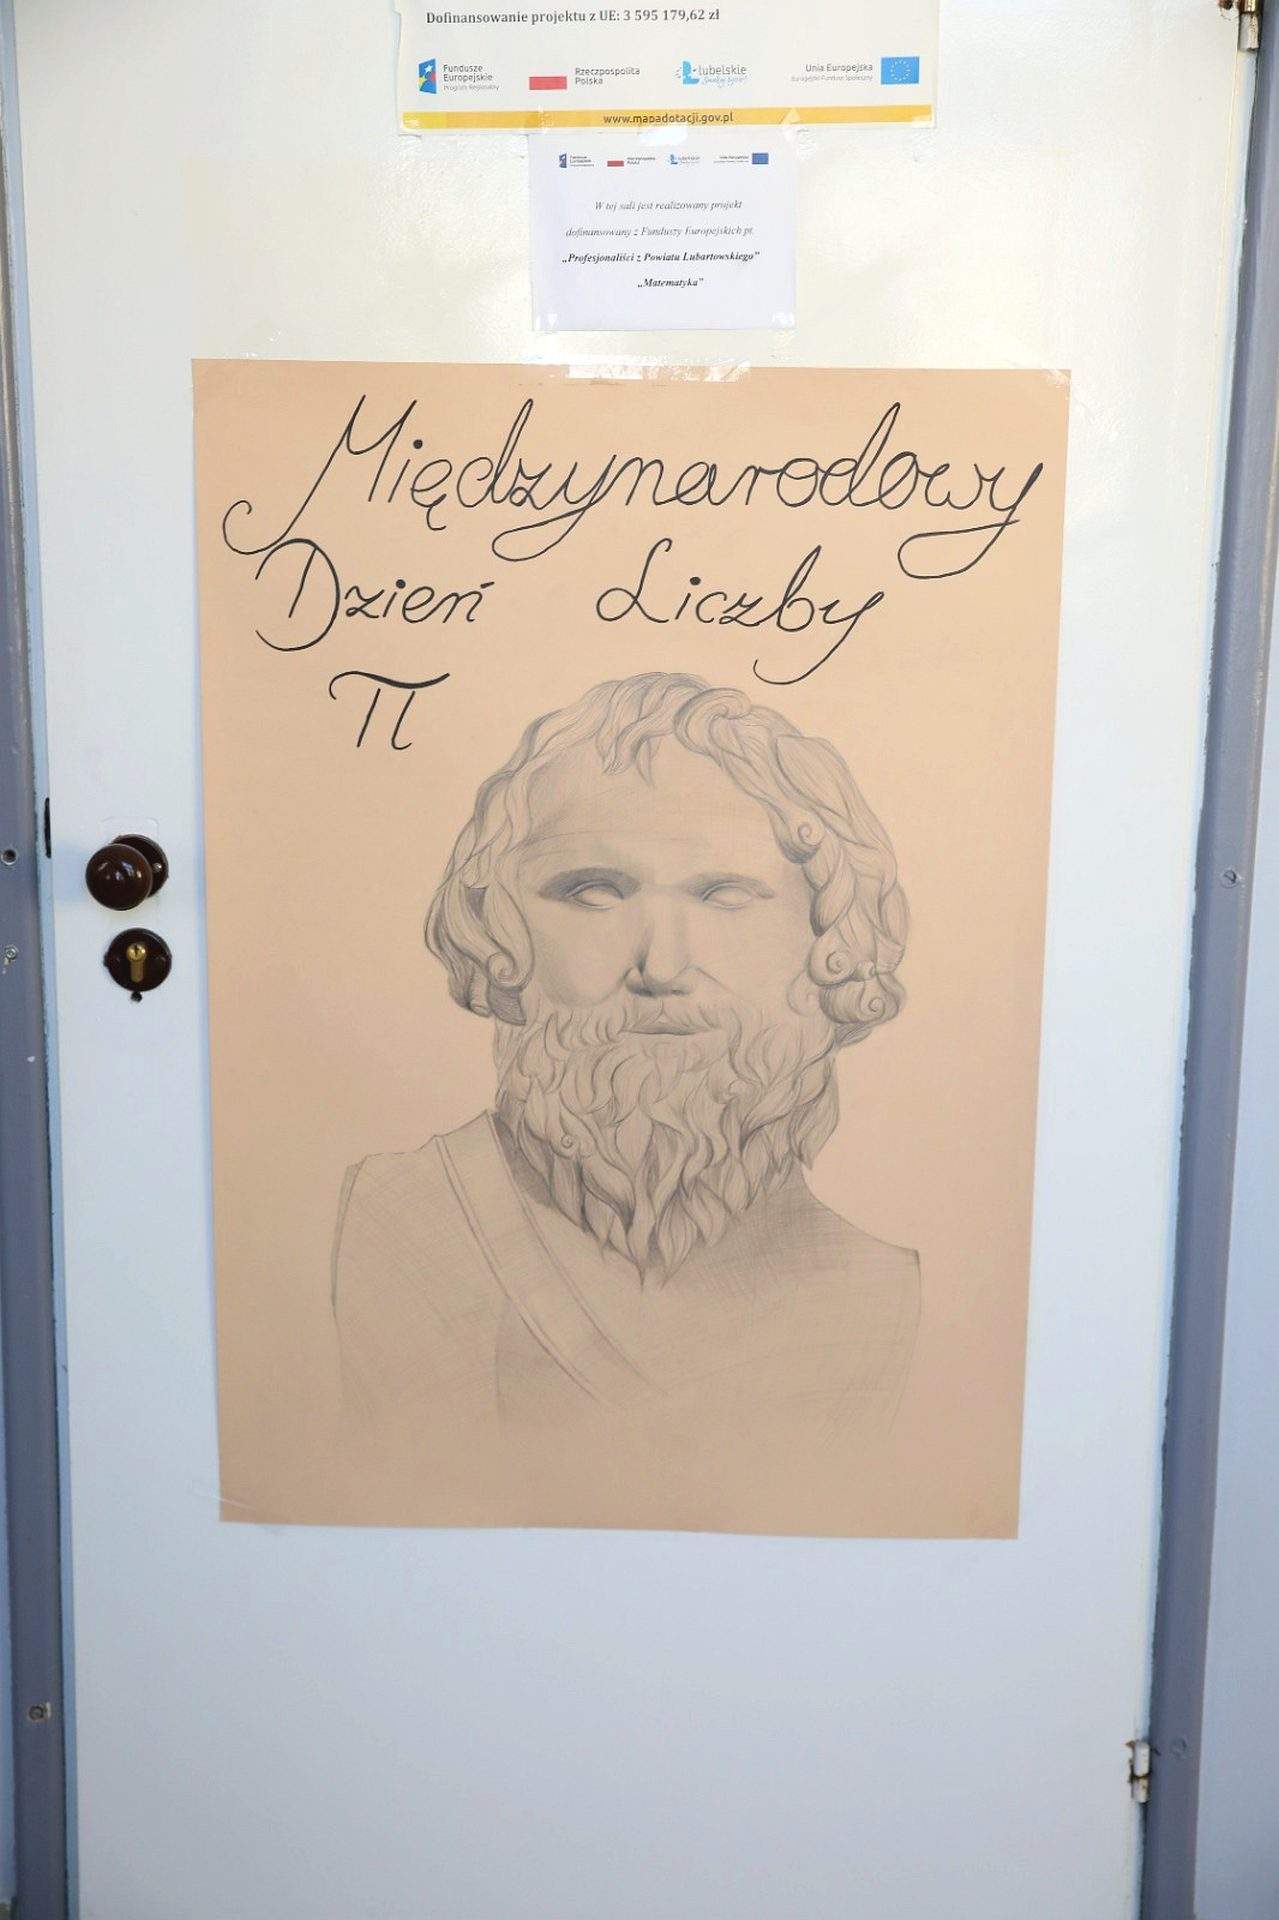 Dofinansowanie projektu z UE: 3 595 179,62 zł
Fundusze Europejskie Program Regionalny
Rzeczpospolita Polska
lubelskie Smakuj życie!
Unia Europejska Europejski Fundusz Społeczny
www.mapadotacji.gov.pl
W tej sali jest realizowany projekt
dofinansowany z Funduszy Europejskich pt.
„Profesjonaliści z Powiatu Lubartowskiego”
„Matematyka”
Międzynarodowy
Dzień Liczby
π